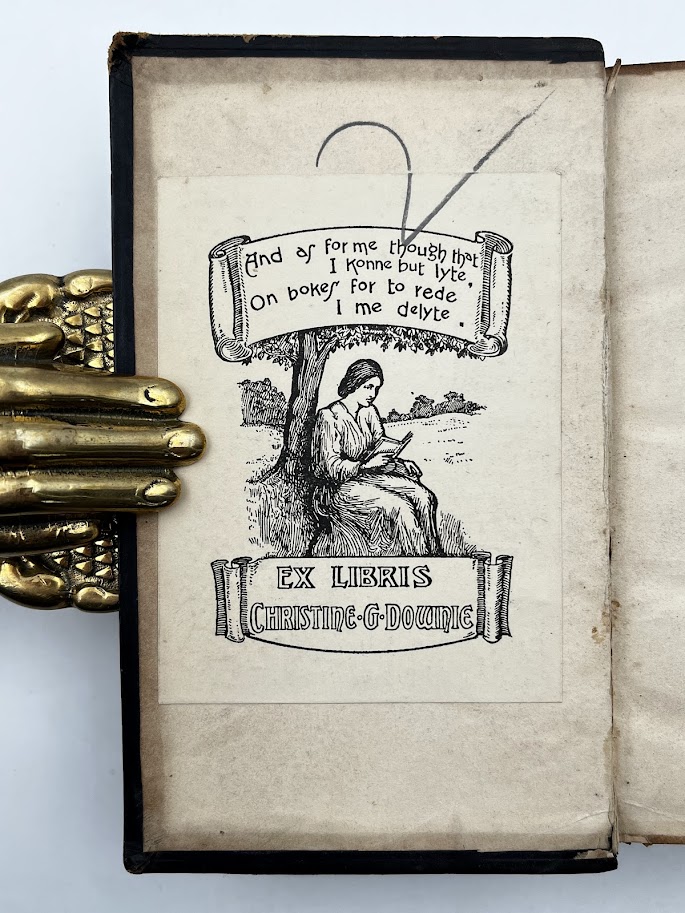 And as for me though that
I konne but lyte,
On bokes for to rede
I me delyte.
EX LIBRIS
CHRISTINE·G·DOWNIE